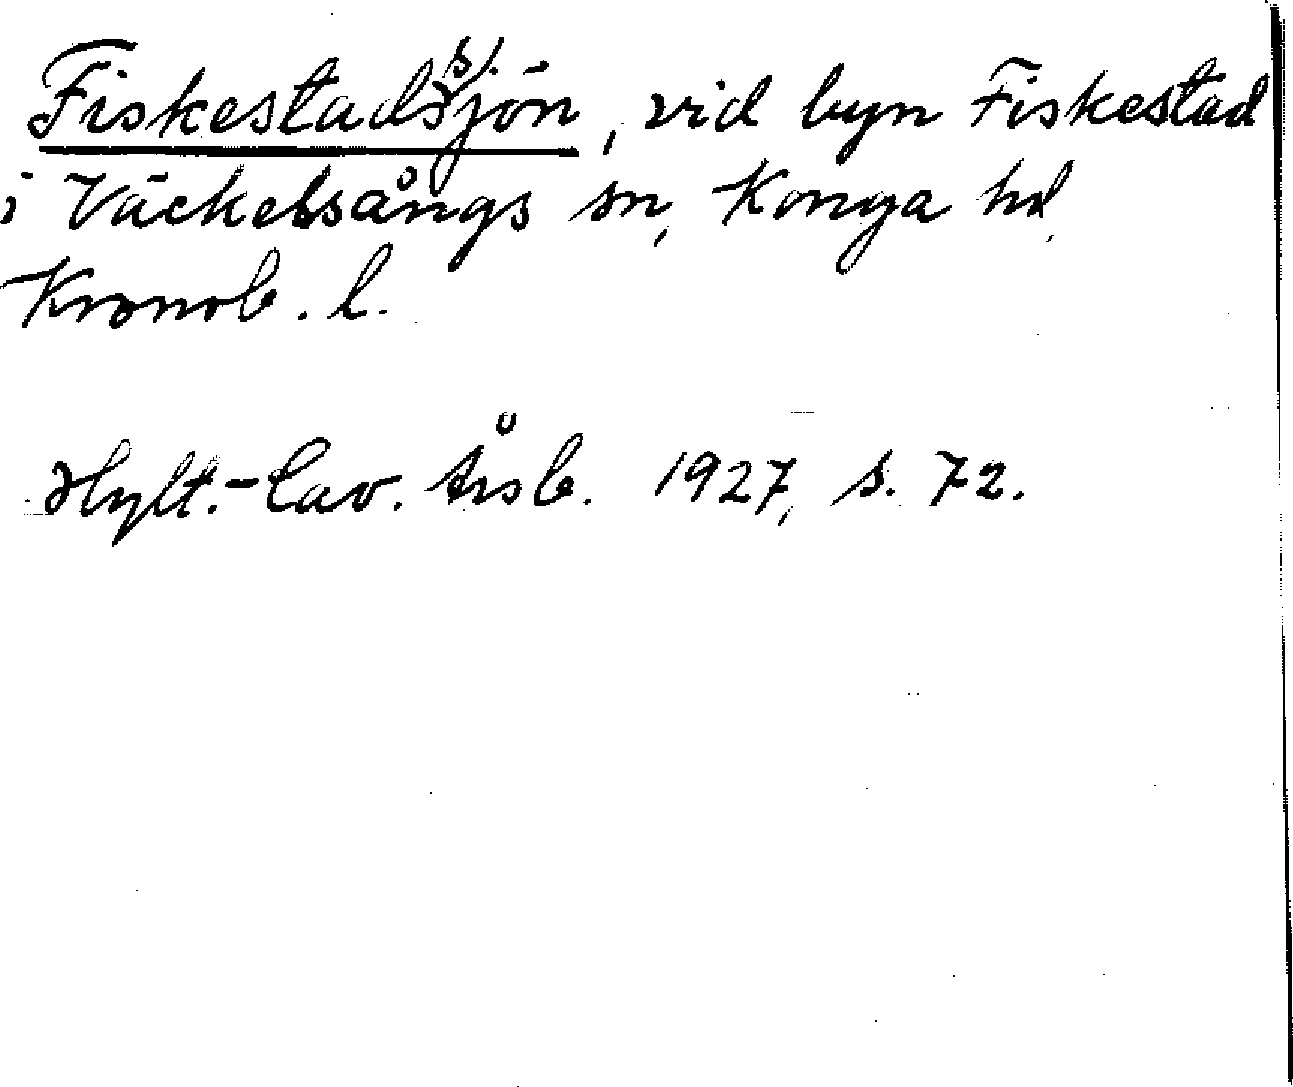 Fiskestadsjön, vid byn Fiskestad
i Väckelsångs sn, Konga hd,
Kronob. l.
Hylt.-Cav. Årsb. 1927, s. 72.